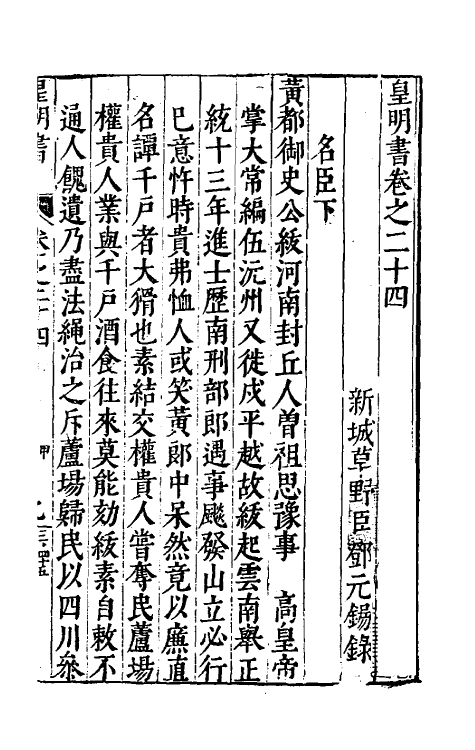 皇明書卷之二十四
新城草野臣鄧元錫錄
名臣下
黃都御史公紱河南封丘人曽祖思豫事　高皇帝
掌大常編伍沅州又徙戍平越故紱起雲南舉正
統十三年進士歷南刑部郎遇事颷發山立必行
巳意忤時貴弗恤人或笑黃郎中呆然竟以廉直
名譚千戶者大猾也素結交權貴人嘗奪民蘆場
權貴人業與千戶酒食往來莫能劾紱素自敕不
通人餽遺乃盡法繩治之斥蘆場歸民以四川叅
皇明書
卷之二十四